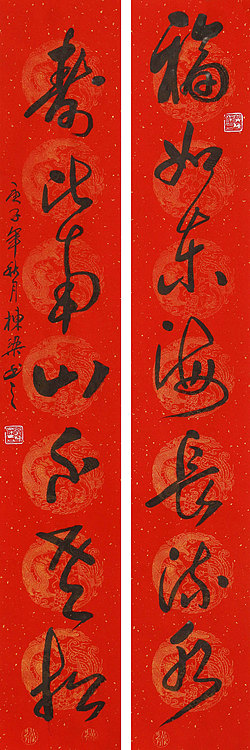 福如东海長流水
寿比南山不老松
庚子年秋月棟梁书之